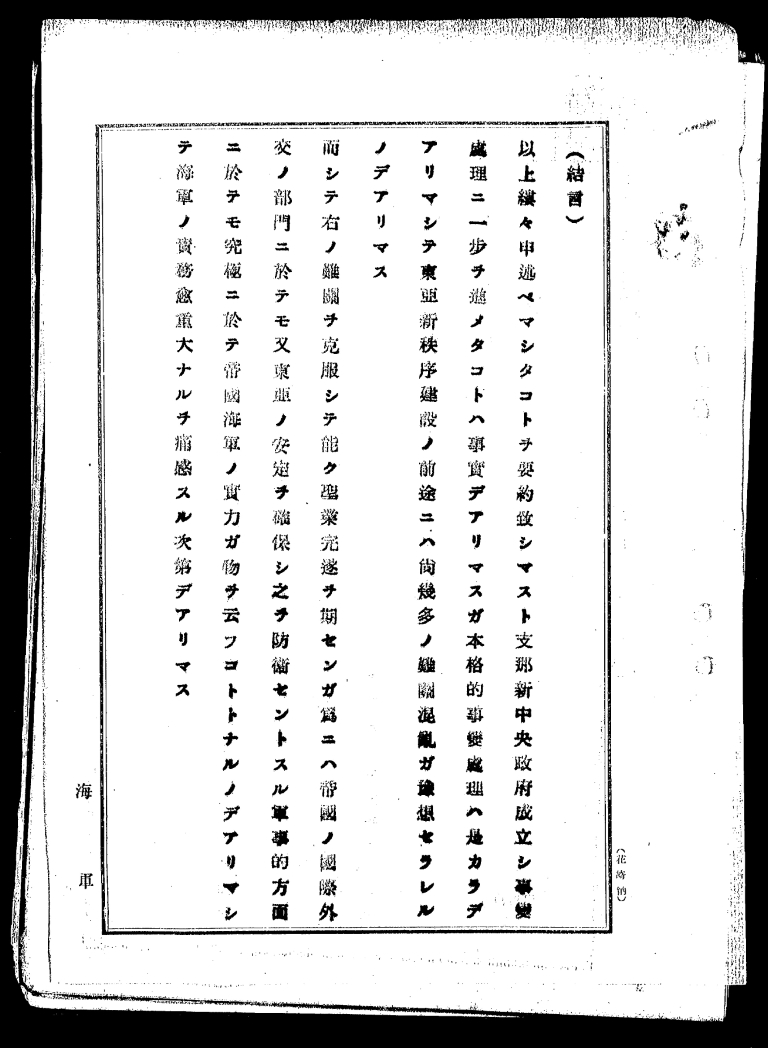 (結言)
以上縷々申述ベマシタコトヲ要約致シマスト支那新中央政府成立シ事變
處理ニ一歩ヲ進メタコトハ事實デアリマスガ本格的事變處理ハ是カラデ
アリマシテ東亞新秩序建設ノ前途ニハ尙幾多ノ難關混亂ガ豫想セラレル
ノデアリマス
而シテ右ノ難關ヲ克服シテ能ク聖業完遂ヲ期センガ爲ニハ帝國ノ國際外
交ノ部門ニ於テモ又東亞ノ安定ヲ確保シ之ヲ防衞セントスル軍事的方面
ニ於テモ究極ニ於テ帝國海軍ノ實力ガ物ヲ云フコトトナルノデアリマシ
テ海軍ノ責務愈重大ナルヲ痛感スル次第デアリマス
海軍